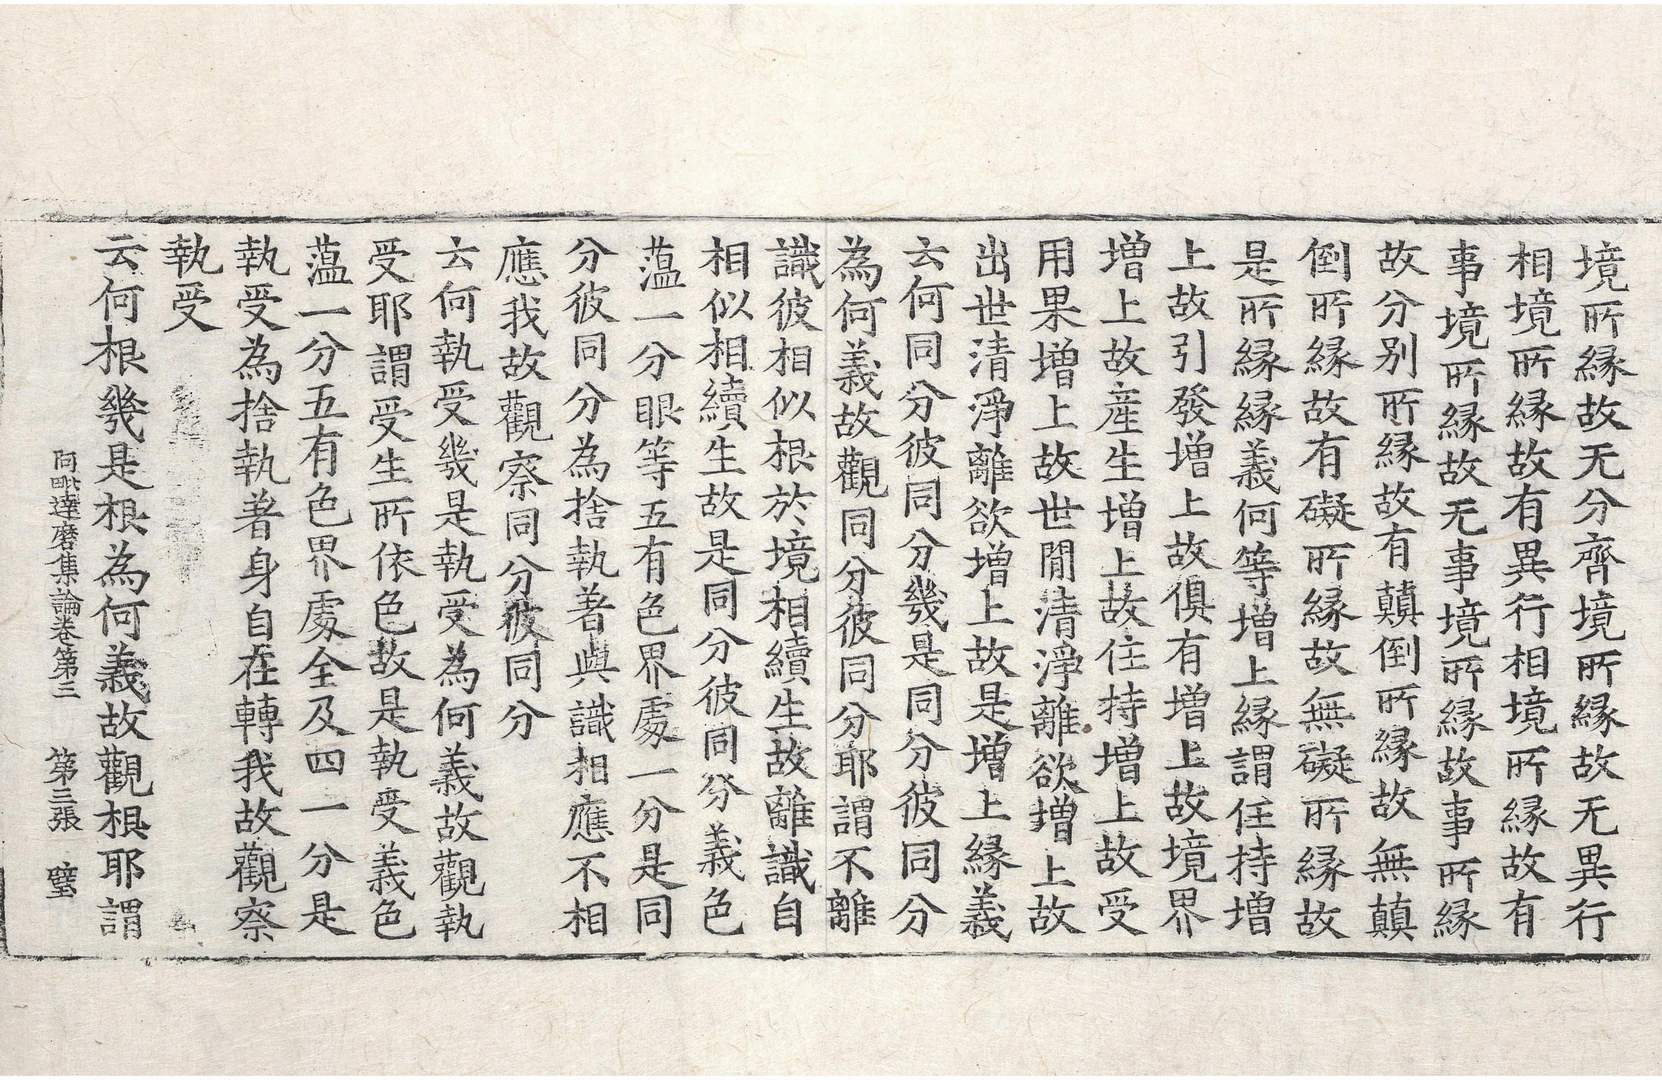 境所緣故无分齊境所緣故无異行
相境所緣故有異行相境所緣故有
事境所緣故无事境所緣故事所緣
故分別所緣故有顛倒所緣故無顛
倒所緣故有礙所緣故無礙所緣故
是所緣緣義何等增上緣謂任持增
上故引發增上故俱有增上故境界
增上故產生增上故住持增上故受
用果增上故世間清淨離欲增上故
出世清淨離欲增上故是增上緣義
云何同分彼同分幾是同分彼同分
為何義故觀同分彼同分耶謂不離
識彼相似根於境相續生故離識自
相似相續生故是同分彼同分義色
蕰一分眼等五有色界處一分是同
分彼同分為捨執著與識相應不相
應我故觀察同分彼同分
云何執受幾是執受為何義故觀執
受耶謂受生所依色故是執受義色
蕰一分五有色界處全及四一分是
執受為捨執著身自在轉我故觀察
執受
云何根幾是根為何義故觀根耶謂
阿毗達磨集論卷第三 第三張 璧